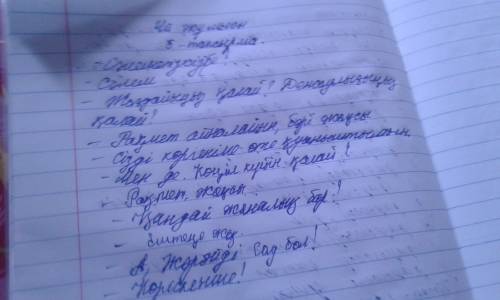 Үй жұмысы
5-тапсырма.
- Сәлем
- Жағдайыңыз қалай! Денсаулығыңыз
қалай!
- Рахмет айналайын, бәрі жақсы
- Сізді көргеніме өте қуаныштымын.
- Мен де. Көңіл күйің қалай!
- Рахмет, жақсы.
- Қандай жаңалық бар!
- Ештеңе жоқ.
- А, Жарайды! Сау бол!
- Көріскенше!